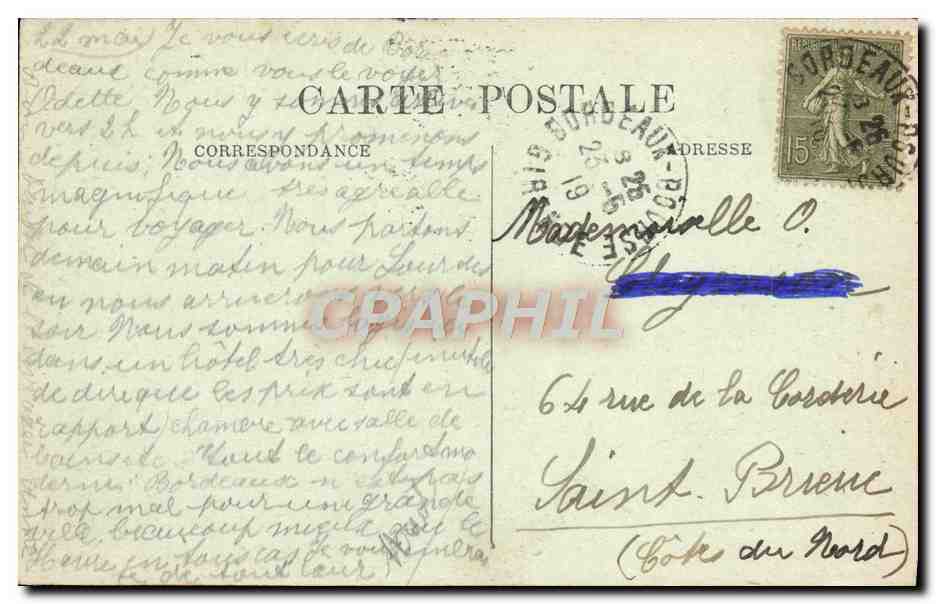 22 mai Je vous écris de Bor
deaux comme vous le voyez
Odette. Nous y sommes arrivés
vers 2h et nous y promenons
depuis; Nous avons un temps
magnifique très agréable
pour voyager. Nous partons
demain matin pour Lourdes
ou nous arriverons
soir. Nous sommes
dans un hôtel très chic (inutile
de dire que les prix sont en
rapport) chambre avec salle de
bains etc. tout le confort mo
derne. Bordeaux n'est pas
trop mal pour une grande
ville, beaucoup mieux que le
Havre en tous cas. Je vous
de tout cœur
CARTE POSTALE
CORRESPONDANCE
ADRESSE
REPUBLIQUE
15
BORDEAUX-BOURSE
GIRONDE
8
25 -5
19
CPAPHIL
Mademoiselle O.
64 rue de la Corderie
Saint-Brieuc
(Côtes du Nord)